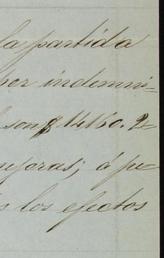 la partida
por indemni-
son $ 4160. 2-
mejoras; á pe-
s los efectos